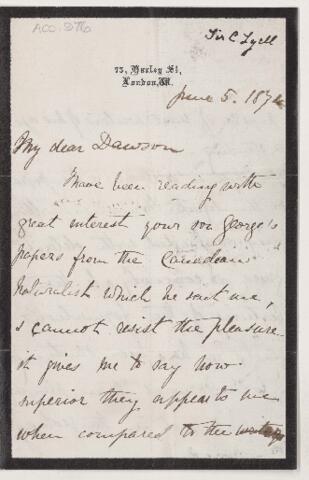 ACC. 376
Sir C Lyell
73, Harley St,
London, W.
June 5. 1874
My dear Dawson
I have been reading with
great interest your son George's
papers from the Canadian
Naturalist which he sent me,
& cannot resist the pleasure
it gives me to say how
superior they appear to me
when compared to the writings